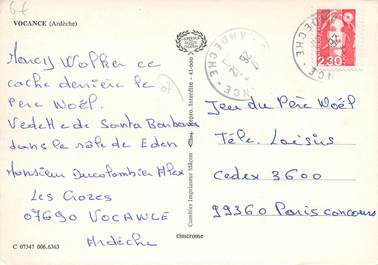 6€
VOCANCE (Ardèche)
Nancy Walker ce
cache derrière le
Père Noël.
Vedette de Santa Barbara
dans le rôle de Eden
Monsieur Ducolombier Alex
Les Gozes
07690 VOCANCE
Ardèche
C 07347 006.6363
cimcrome
Combier Imprimeur Mâcon
Repro. Interdite - 41-000
ARDECHE
2.30
Jeu du Père Noël
Télé. Loisirs
Cedex 3600
99360 Paris concours